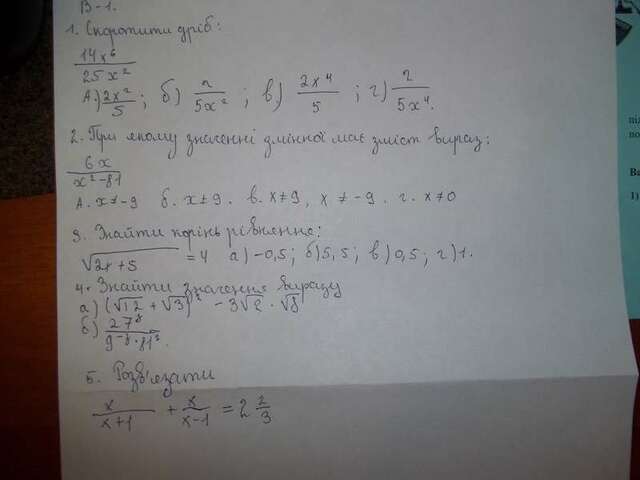 В-1.
1. Скоротити дріб:
14x⁶/25x²
А.) 2x²/5; б) 2/5x²; в.) 2x⁴/5; г) 2/5x⁴.
2. При якому значенні змінної має зміст вираз:
6x/x²-81
А. x≠-9 б. x≠9. в. x≠9, x≠-9. г. x≠0
3. Знайти корінь рівняння:
√2x+5 = 4 а) -0,5; б) 5,5; в) 0,5; г) 1.
4. Знайти значення виразу
а) (√12 + √3)² - 3√2 · √8
б)
5. Розв'язати
x/x+1 + x/x-1 = 2 2/3
1)